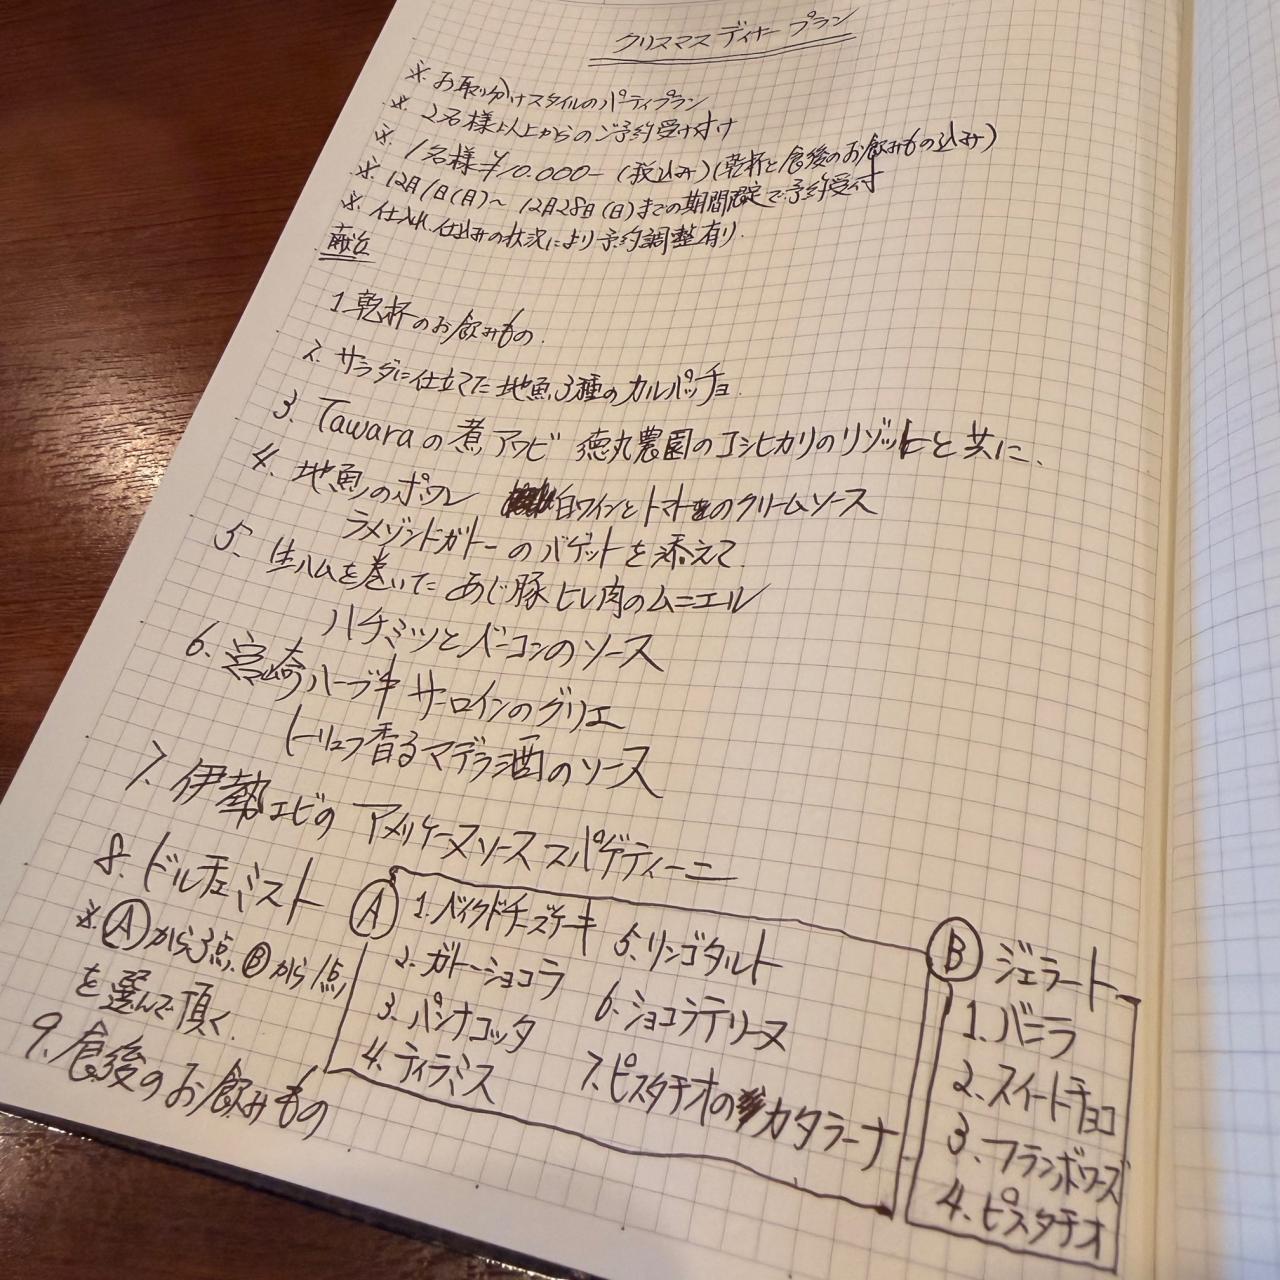 クリスマスディナープラン
※. お取り分けスタイルのパーティプラン
※. 2名様以上からのご予約受け付け
※. 1名様¥10.000-(税込み)(乾杯と食後のお飲みもの込み)
※. 12月1日(月)〜12月28日(日)までの期間限定で予約受付
※. 仕入れ.仕込みの状況により予約調整有り.
献立
1.乾杯のお飲みもの.
2. サラダに仕立てた地魚3種のカルパッチョ.
3. Tawaraの煮アワビ 徳丸農園のコシヒカリのリゾットと共に.
4. 地魚のポワレ 白ワインとトマトのクリームソース
ラメゾンドガトーのバゲットを添えて.
5. 生ハムを巻いたあじ豚ヒレ肉のムニエル
ハチミツとベーコンのソース
6. 宮崎ハーブ牛サーロインのグリエ
トリュフ香るマデラ酒のソース
7. 伊勢エビのアメリケーヌソーススパゲティーニ
8. ドルチェミスト
※. Ⓐから3点.Ⓑから1点
を選んで頂く.
Ⓐ 1.ベイクドチーズケーキ
2. ガトーショコラ
3. パンナコッタ
4. ティラミス
5.リンゴタルト
6.ショコラテリーヌ
7.ピスタチオのカタラーナ
Ⓑ ジェラート
1.バニラ
2.スイートチョコ
3.フランボワーズ
4.ピスタチオ
9.食後のお飲みもの